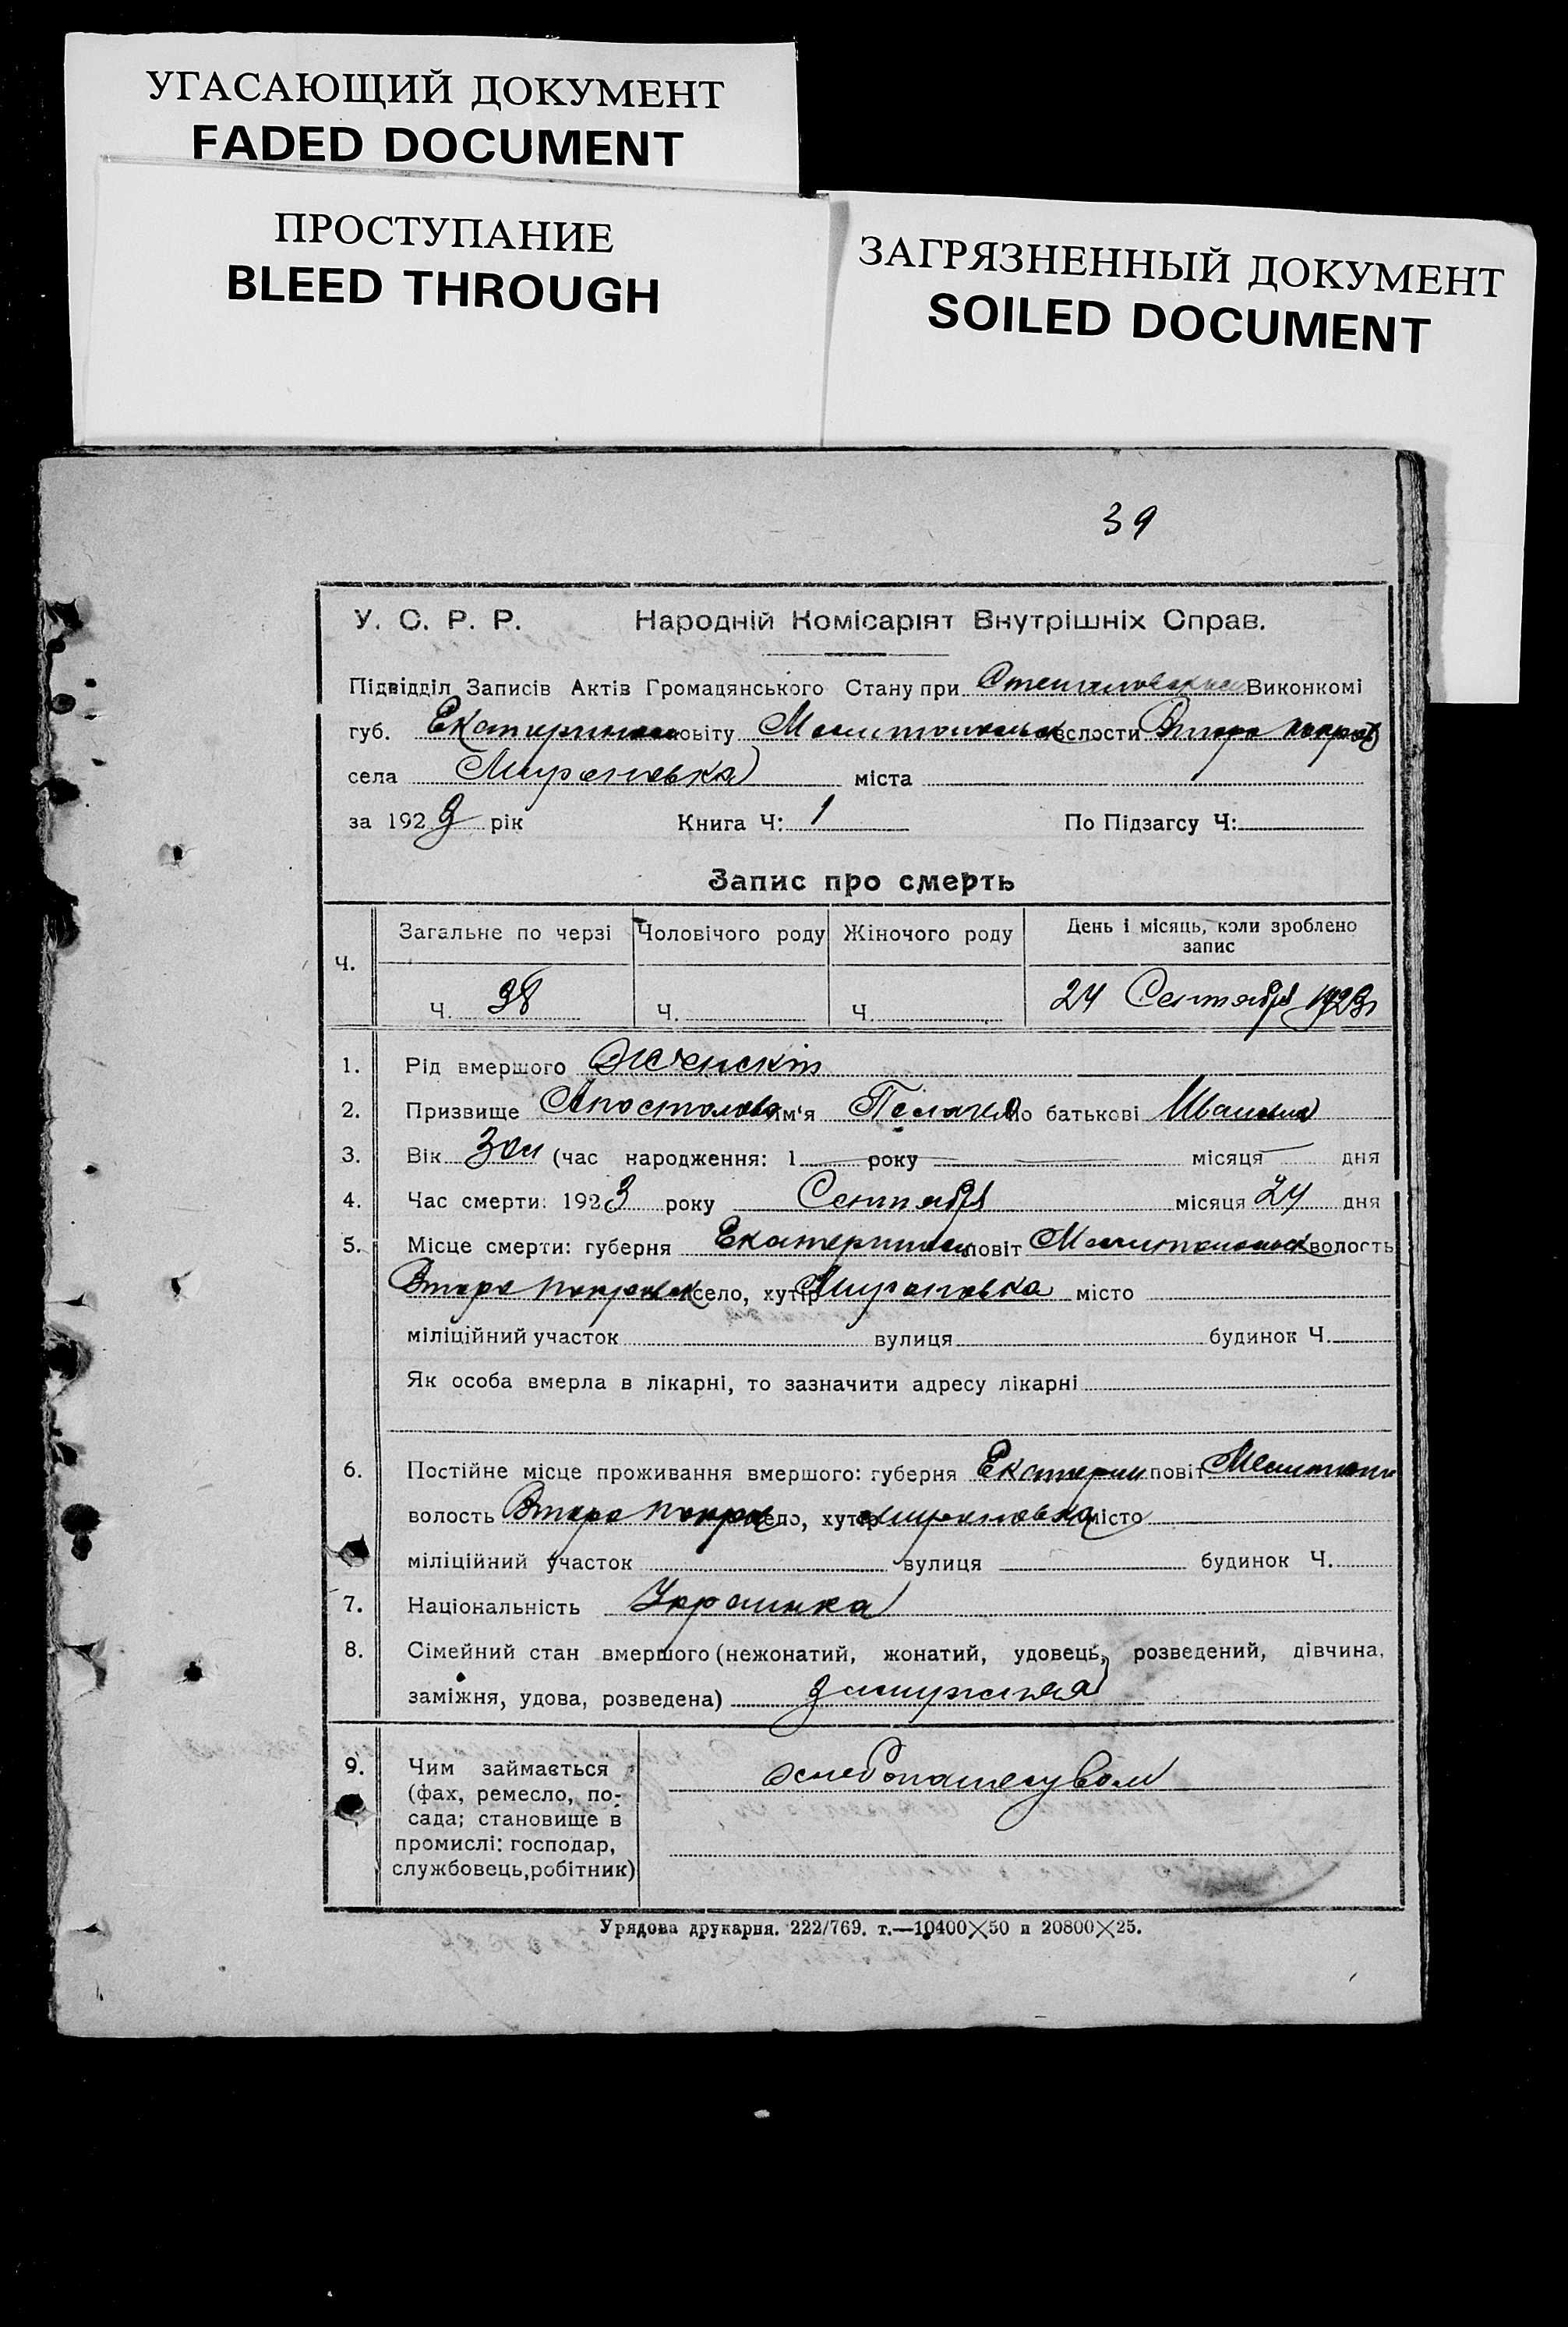 УГАСАЮЩИЙ ДОКУМЕНТ
FADED DOCUMENT
ПРОСТУПАНИЕ
BLEED THROUGH
ЗАГРЯЗНЕННЫЙ ДОКУМЕНТ
SOILED DOCUMENT
39
У. С. Р. Р. Народній Комісаріят Внутрішніх Справ.
Підвідділ Записів Актів Громадянського Стану при Виконкомі
губ. повіту волости Второ
села Мирановка міста
за 1923 рік Книга Ч: 1 По Підзагсу Ч:
Запис про смерть
Ч. Загальне по черзі Чоловічого роду Жіночого роду День і місяць, коли зроблено запис
Ч. 38 Ч. Ч. 24 Сентября 1923
1. Рід вмершого Женскій
2. Призвище Апостолова Ім'я по батькові
3. Вік (час народження: 1 року місяця дня
4. Час смерти: 1923 року Сентября місяця 24 дня
5. Місце смерти: губерня повіт волость
Второ село, хутір Мирановка місто
міліційний участок вулиця будинок Ч.
Як особа вмерла в лікарні, то зазначити адресу лікарні
6. Постійне місце проживання вмершого: губерня Екатерин повіт
волость Второ село, хутір Мирановка місто
міліційний участок вулиця будинок Ч.
7. Національність Украинка
8. Сімейний стан вмершого (нежонатий, жонатий, удовець, розведений, дівчина,
заміжня, удова, розведена) замужняя
9. Чим займається
(фах, ремесло, по-
сада; становище в
промислі: господар,
службовець, робітник)
Урядова друкарня. 222/769. т.—10400×50 и 20800×25.